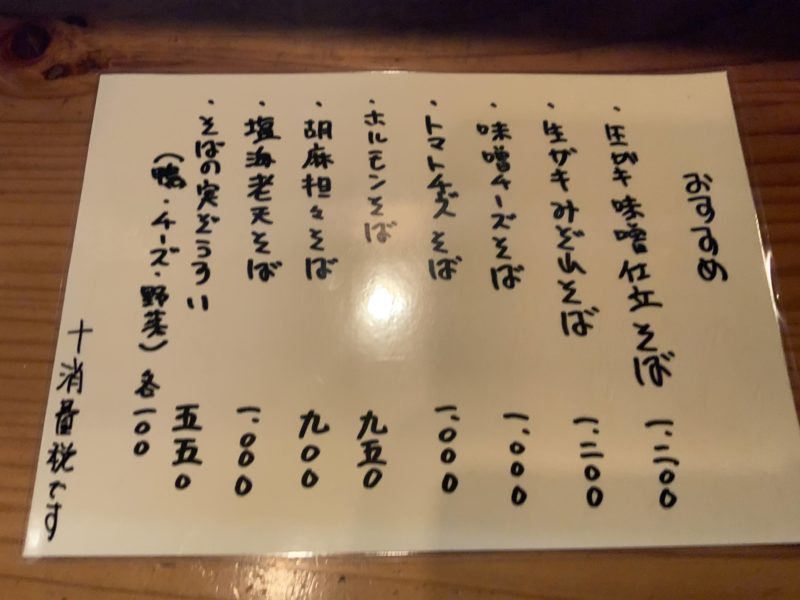 おすすめ
・生ガキ味噌仕立そば 一、二〇〇
・生ガキみぞれそば 一、二〇〇
・味噌チーズそば 一、〇〇〇
・トマトチーズそば 一、〇〇〇
・ホルモンそば 九五〇
・胡麻担々そば 九〇〇
・塩海老天そば 一、〇〇〇
・そばの実ぞうすい 五五〇
(鴨・チーズ・野菜) 各一〇〇
+消費税です